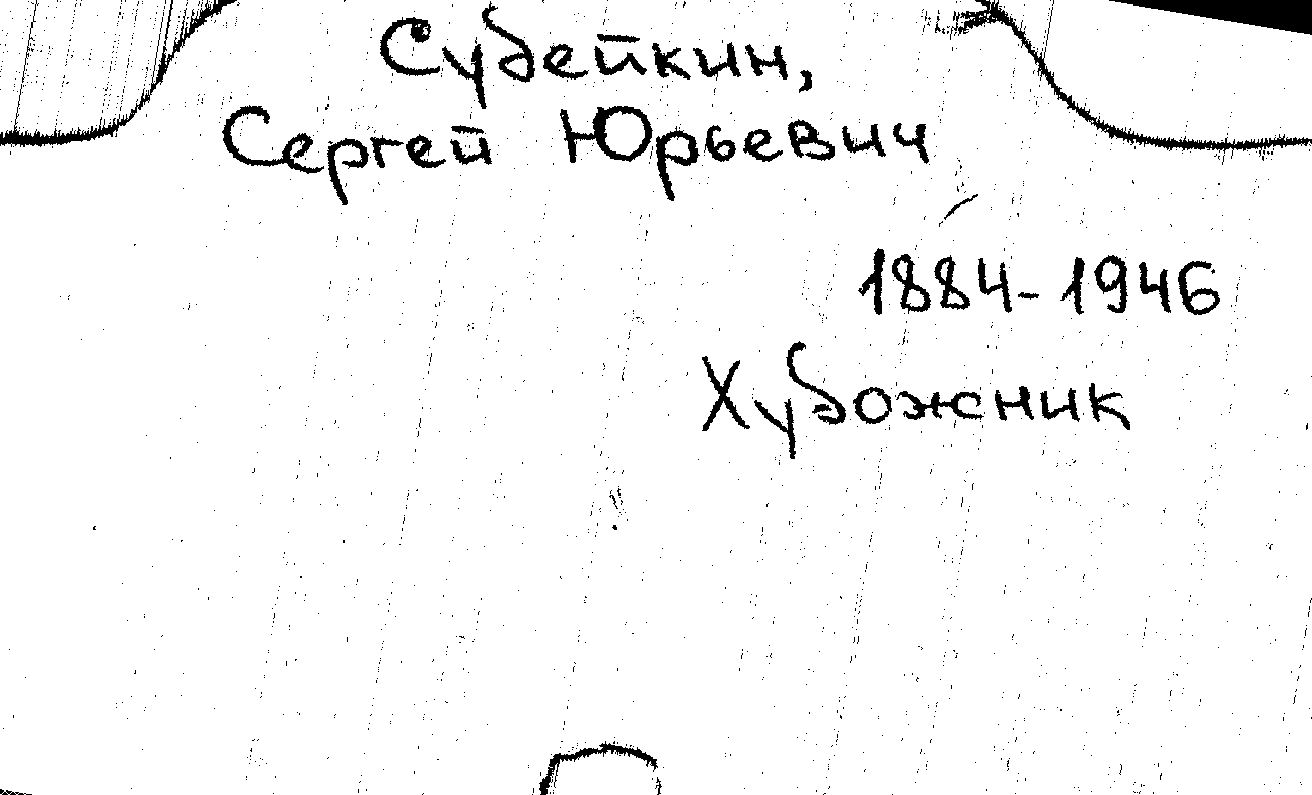 Судейкин,
Сергей Юрьевич
1884-1946
Художник